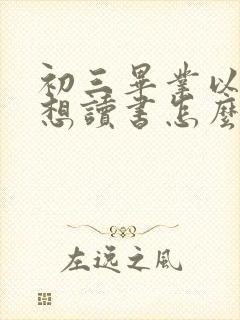 初三畢業以
想讀書怎麼
左逸之風